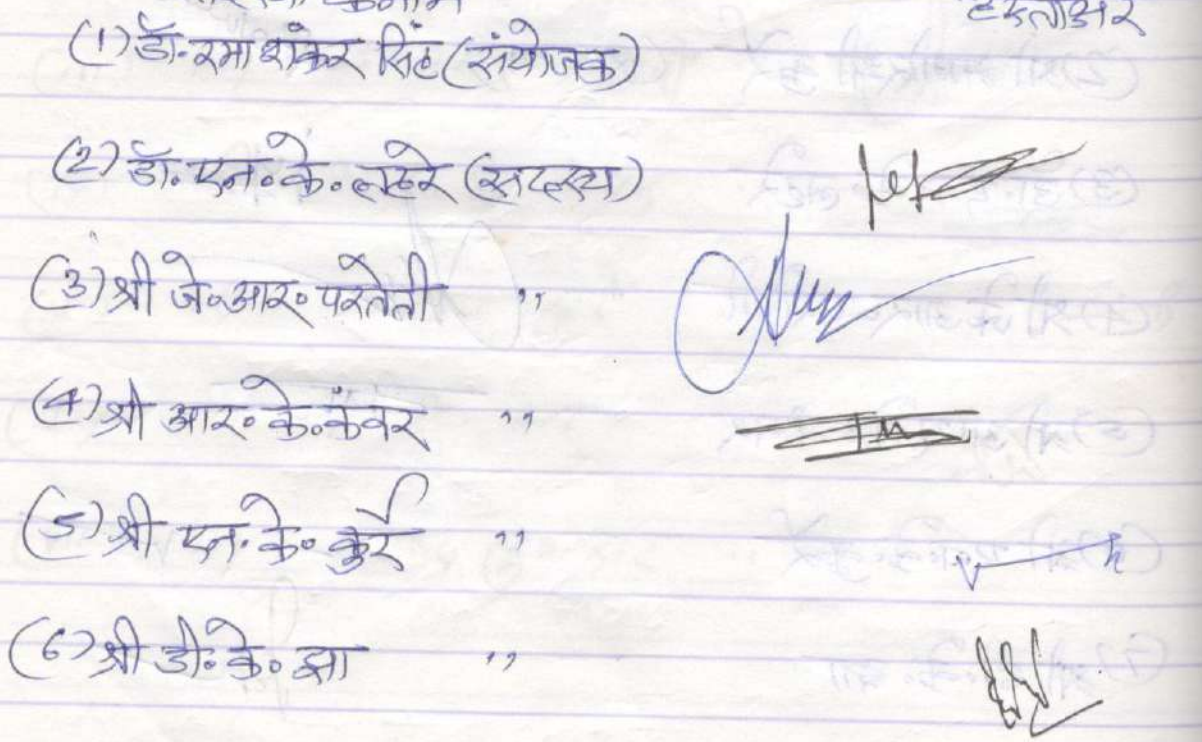 के नाम हस्ताक्षर
(1) डॉ. रमा शंकर सिंह (संयोजक)
(2) डॉ. एन. के. लहरे (सदस्य)
(3) श्री जे. आर. परतेती ,,
(4) श्री आर. के. कंवर ,,
(5) श्री एन. के. कुर्रे ,,
(6) श्री डी. के. झा ,,